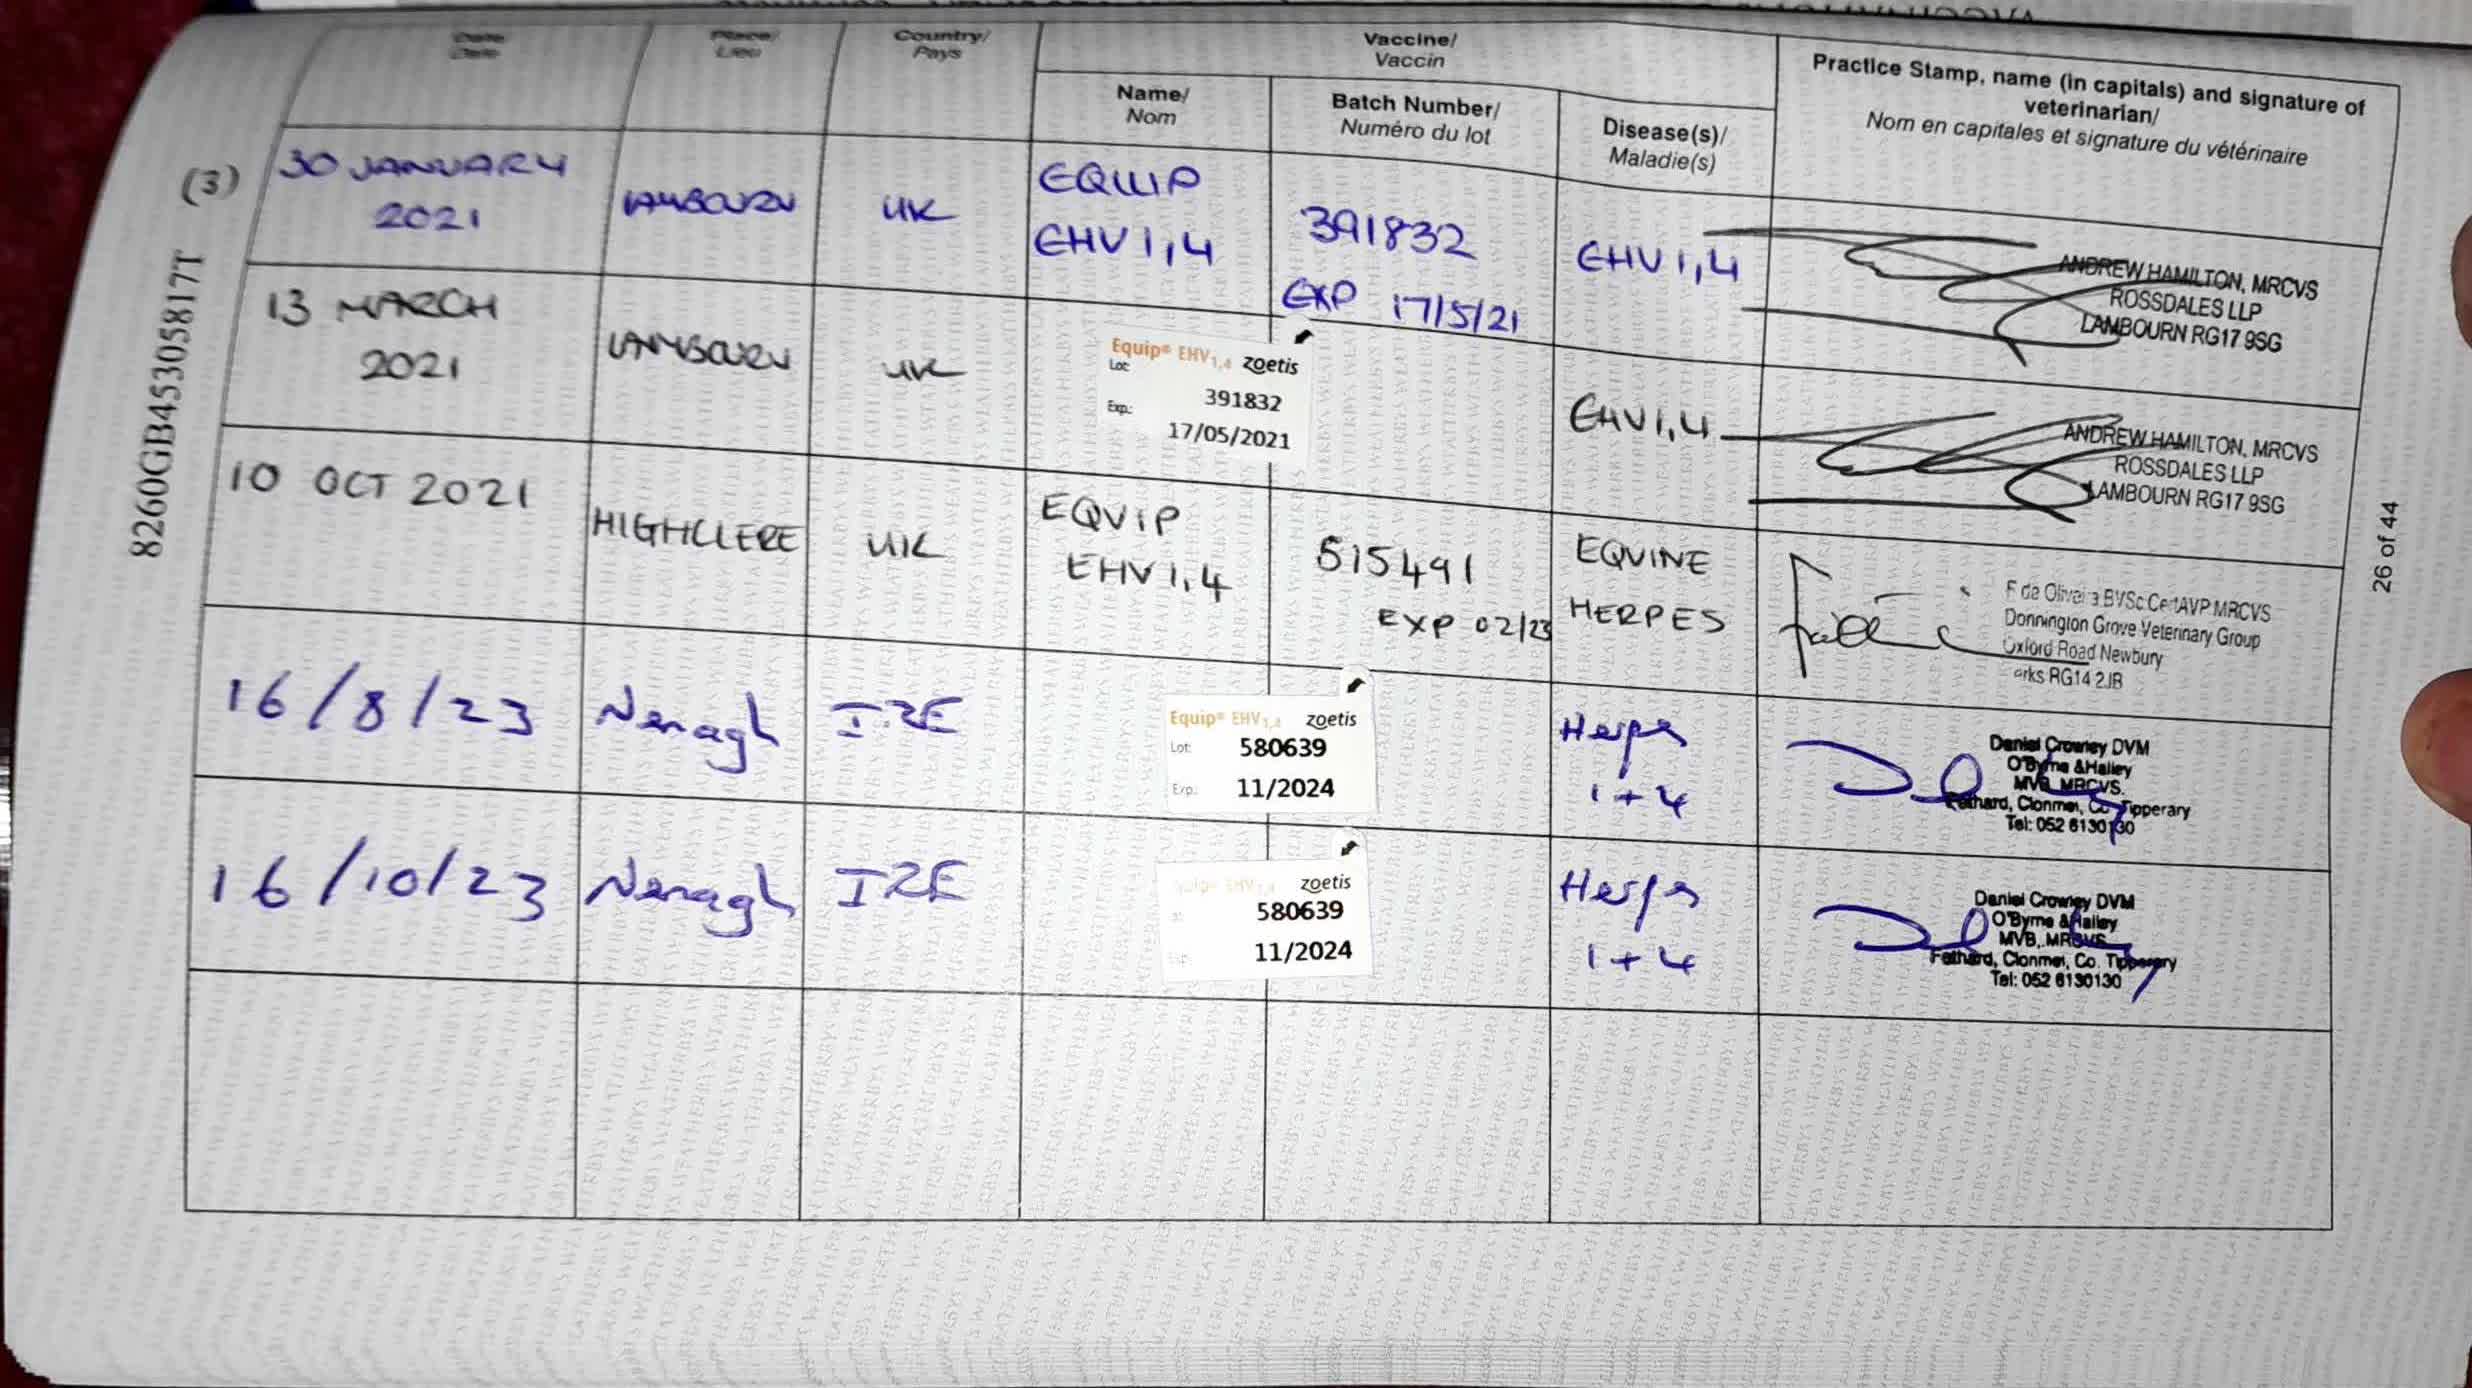 Date/
Date
Place/
Lieu
Country/
Pays
Vaccine/
Vaccin
Name/
Nom
Batch Number/
Numéro du lot
Disease(s)/
Maladie(s)
Practice Stamp, name (in capitals) and signature of
veterinarian/
Nom en capitales et signature du vétérinaire
(3)
8260GB45305817T
26 of 44
30 JANUARY
2021
LAMBOURN
UK
EQUIP
EHV 1,4
391832
EXP 17/5/21
EHV 1,4
ANDREW HAMILTON, MRCVS
ROSSDALES LLP
LAMBOURN RG17 9SG
13 MARCH
2021
LAMBOURN
UK
Equip® EHV1,4 zoetis
Lot:
391832
Exp.:
17/05/2021
EHV 1,4
ANDREW HAMILTON, MRCVS
ROSSDALES LLP
LAMBOURN RG17 9SG
10 OCT 2021
HIGHCLERE
UK
EQUIP
EHV 1,4
515491
EXP 02/23
EQUINE
HERPES
F de Oliveira BVSc CertAVP MRCVS
Donnington Grove Veterinary Group
Oxford Road Newbury
erks RG14 2JB
16/8/23
Nenagh
IRE
Equip® EHV1,4 zoetis
Lot: 580639
Exp.: 11/2024
Herpes
1 + 4
Daniel Crowley DVM
O'Byrne & Halley
MVB, MRCVS.
Fethard, Clonmel, Co. Tipperary
Tel: 052 6130130
16/10/23
Nenagh
IRE
Equip® EHV1,4 zoetis
580639
11/2024
Herpes
1 + 4
Daniel Crowley DVM
O'Byrne & Halley
MVB, MRCVS
Fethard, Clonmel, Co. Tipperary
Tel: 052 6130130